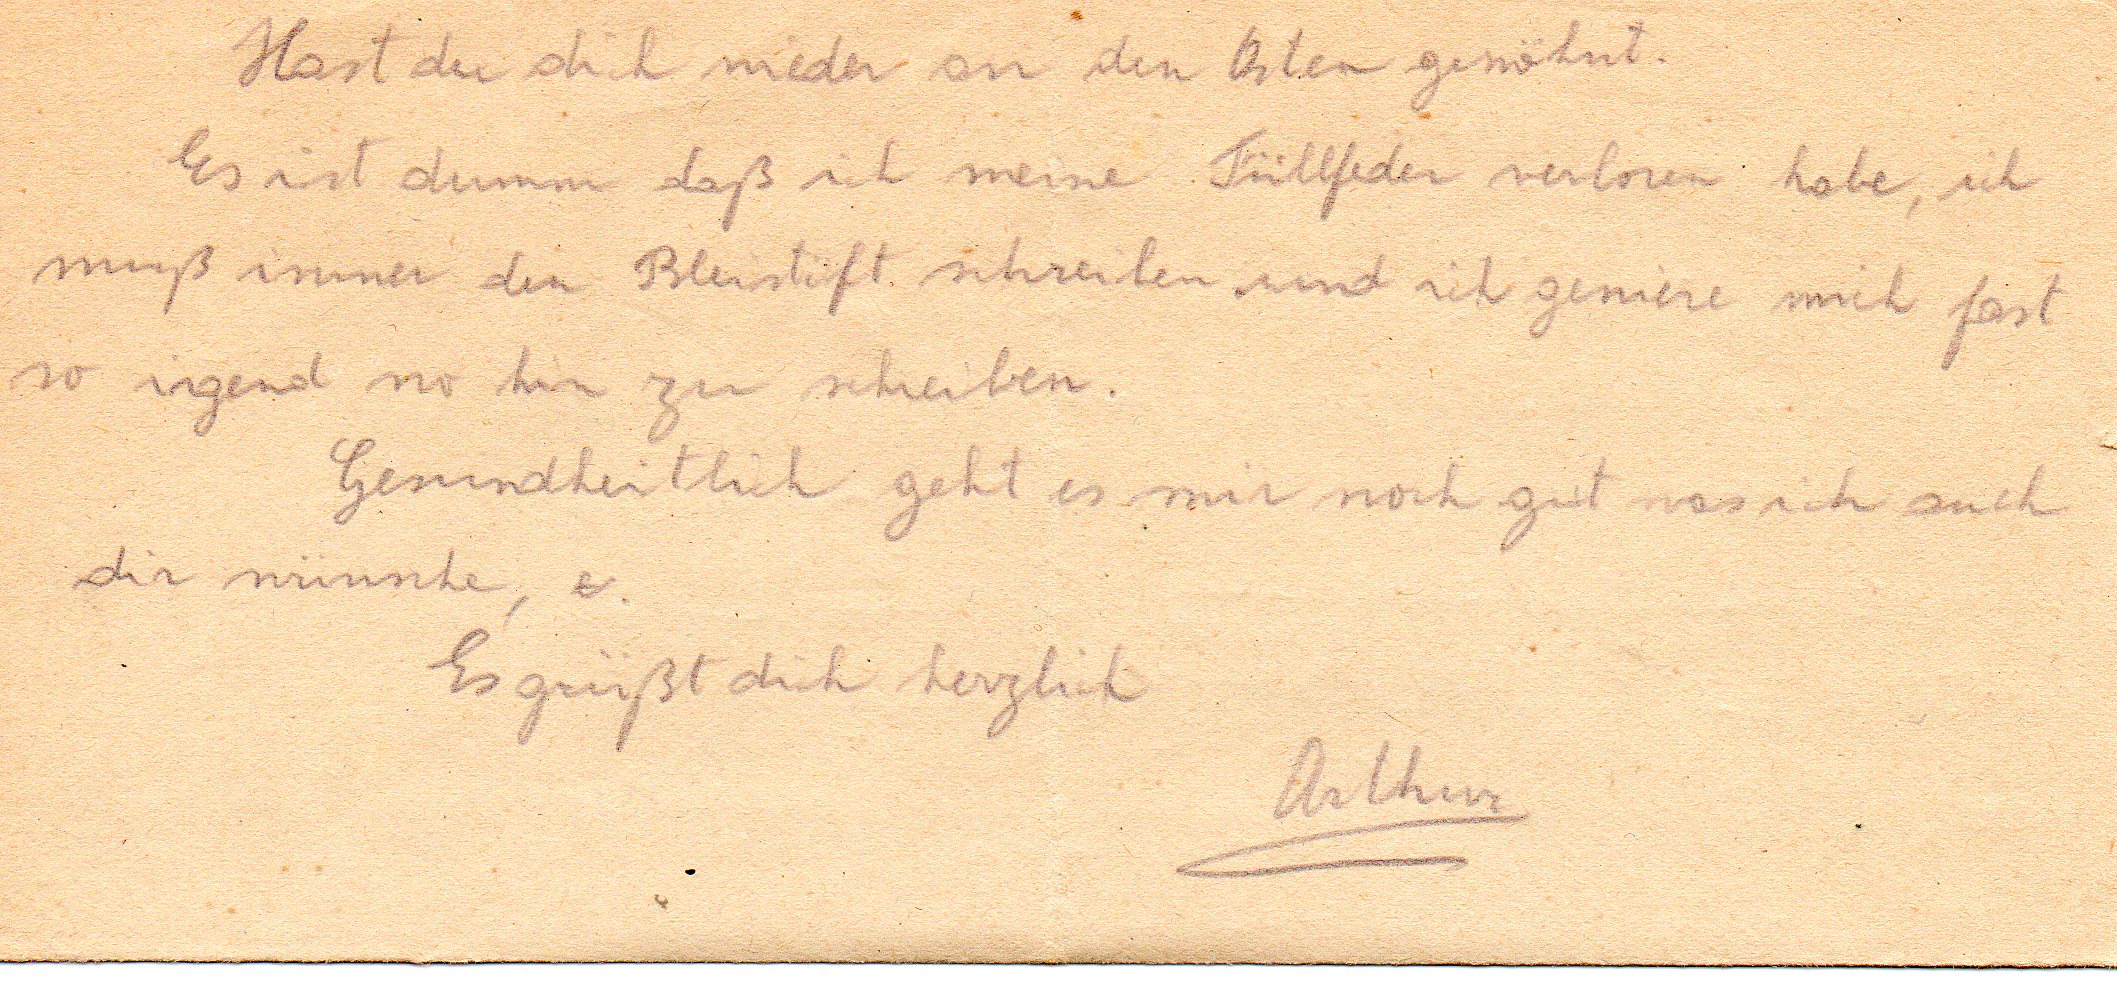 Hast du dich wieder an den Osten gewöhnt.
Es ist dumm daß ich meine Füllfeder verloren habe, ich
muß immer den Bleistift schreiben und ich geniere mich fast
so irgend wo hin zu schreiben.
Gesundheitlich geht es mir noch gut was ich auch
dir wünsche, e.
Es grüßt dich herzlich
Arthur